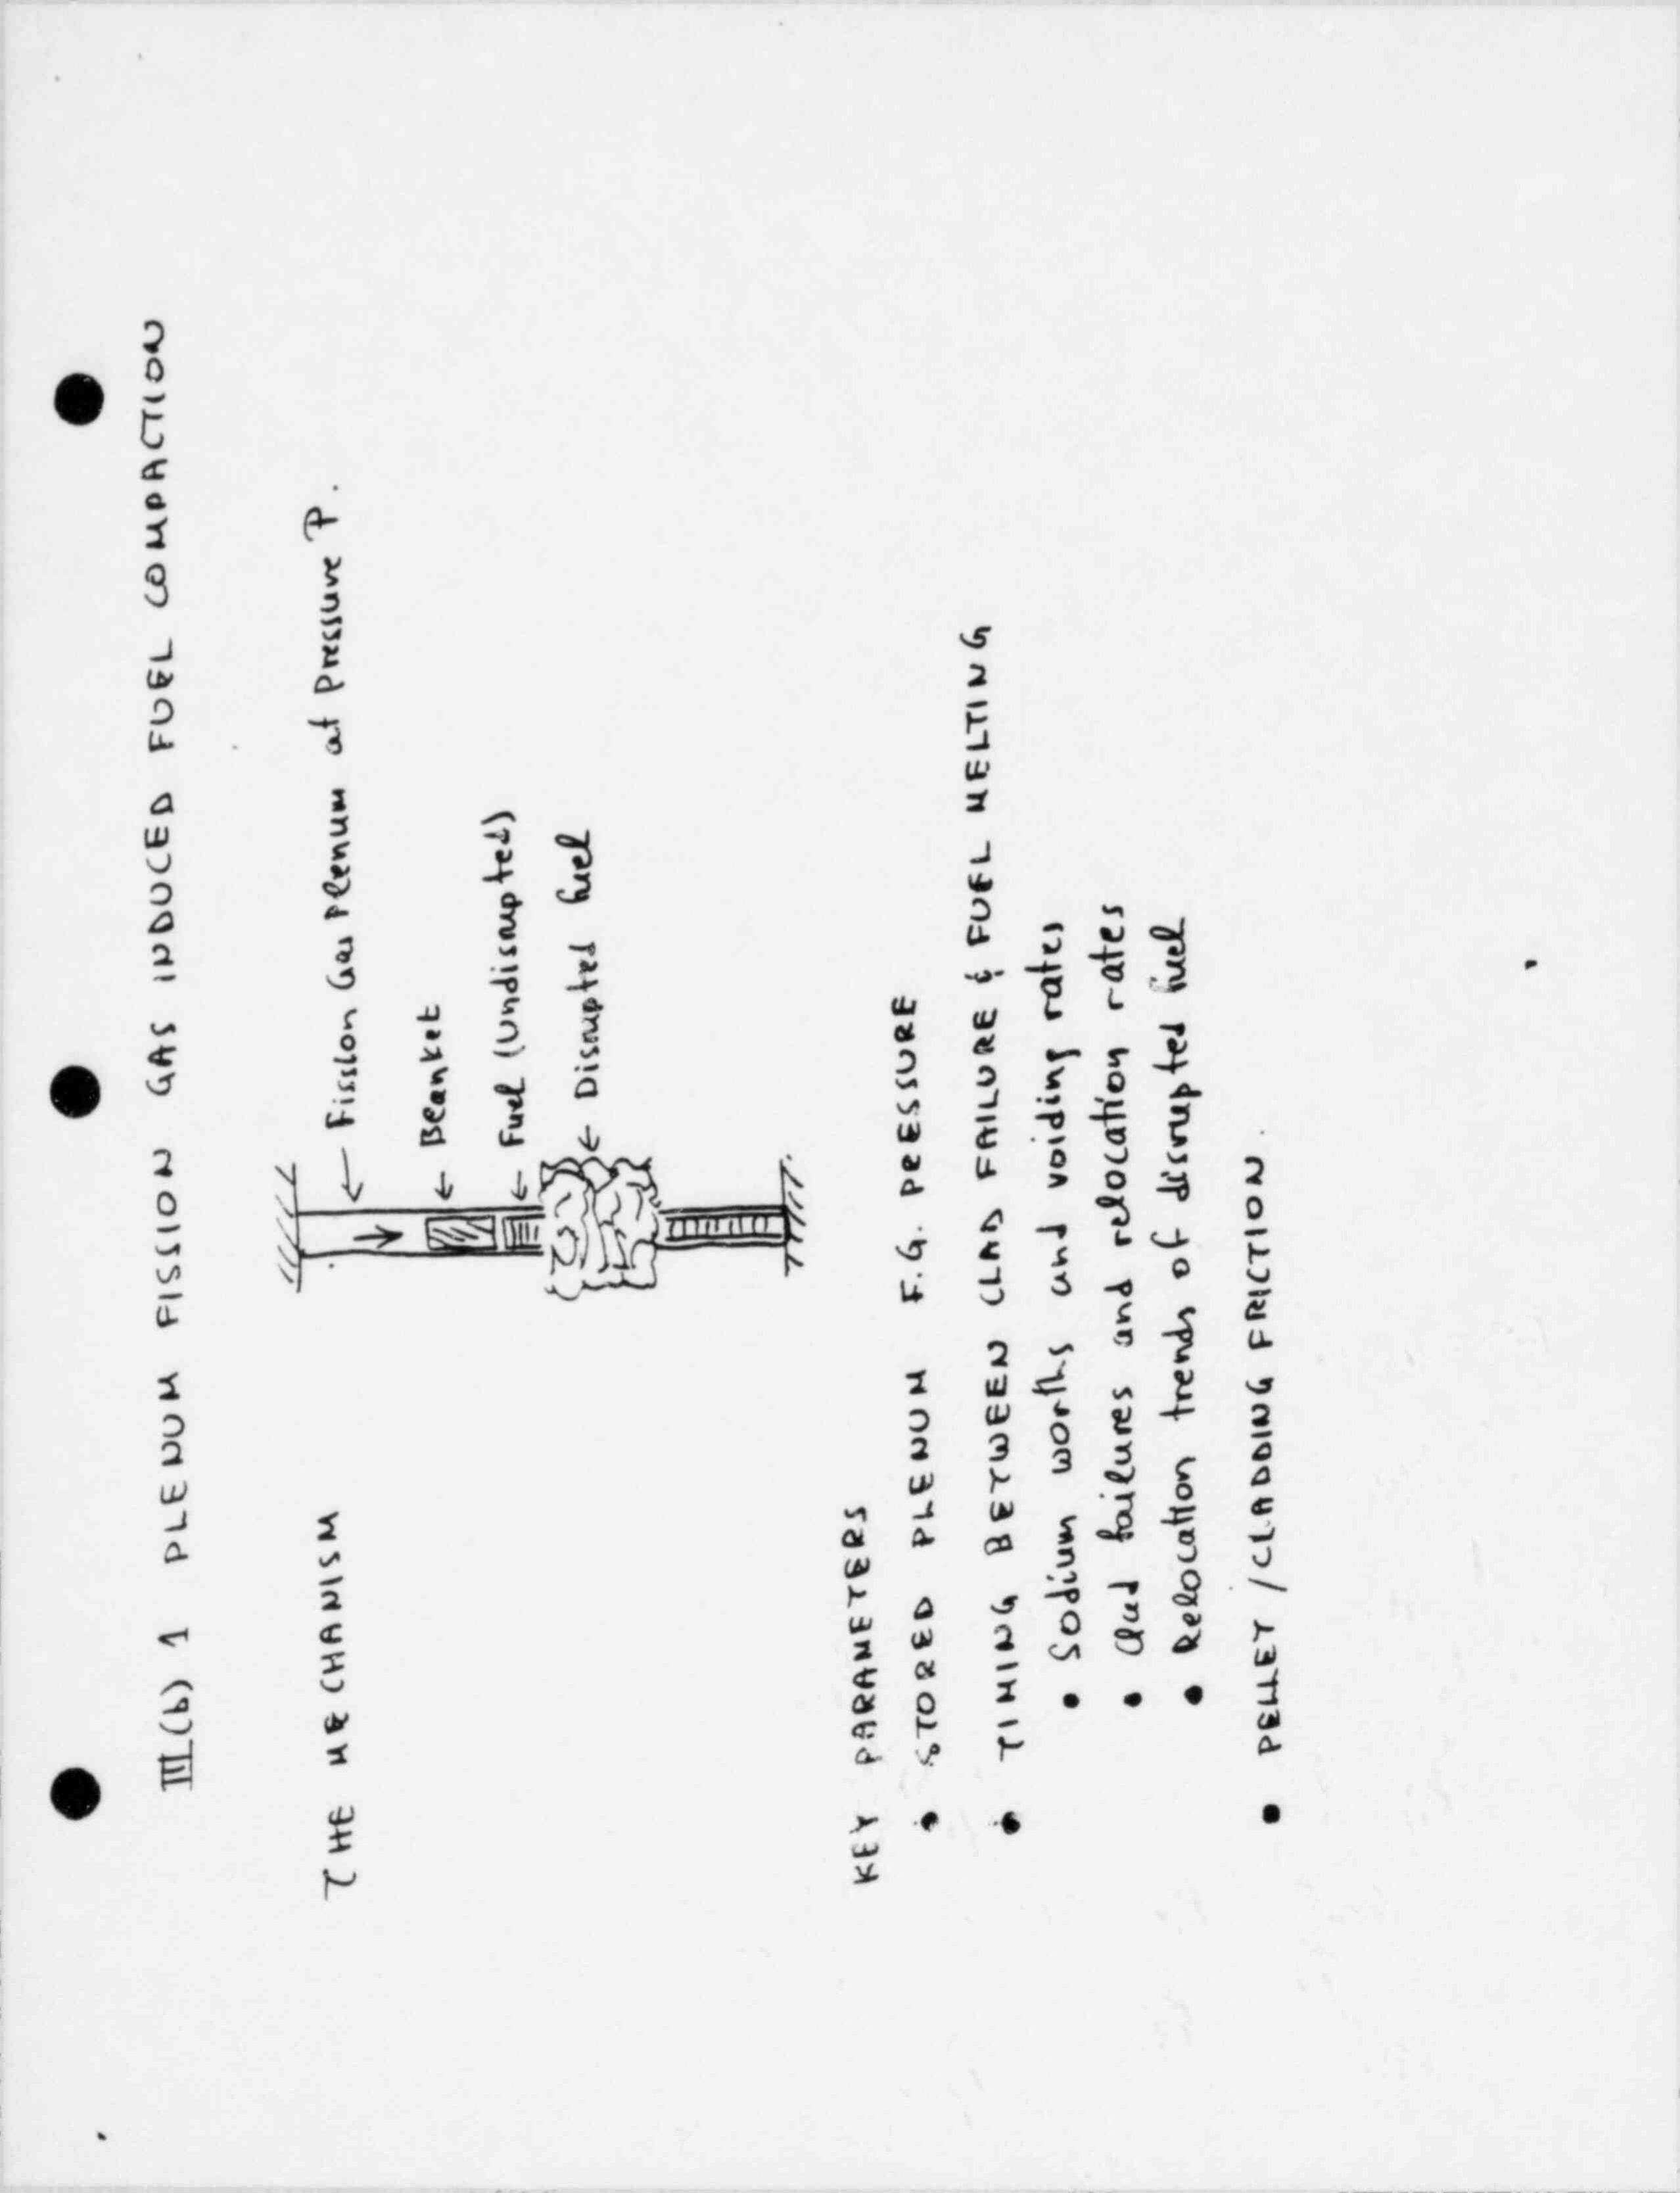 III(b) 1 PLENUM FISSION GAS INDUCED FUEL COMPACTION
THE MECHANISM
← Fission Gas Plenum at Pressure P.
← Blanket
← Fuel (Undisrupted)
← Disrupted fuel
KEY PARAMETERS
• STORED PLENUM F.G. PRESSURE
• TIMING BETWEEN CLAD FAILURE & FUEL MELTING
• Sodium worths and voiding rates
• Clad failures and relocation rates
• Relocation trends of disrupted fuel
• PELLET/CLADDING FRICTION